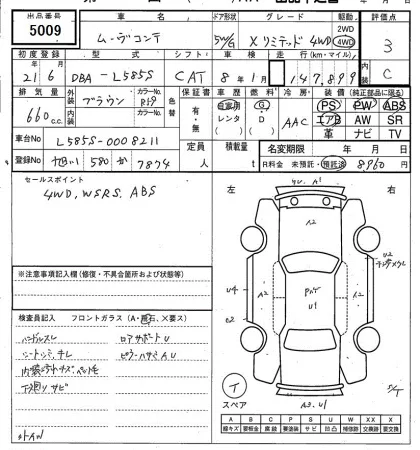 出品番号 車名 ドア形状 グレード 駆動 評価点
5009 ムーヴコンテ 5W/G X リミテッド 4WD 2WD 4WD 3
初度登録 型式 シフト 車検 走行(km・マイル) 内装
21年 6月 DBA-L585S CAT 8年 1月 147,899 C
排気量 外装 ブラウン カラーNo. R59 色替 保証書 車歴 燃料 冷房 装備(純正部品に限る)
660 c.c. 内装 カラーNo. 有・無 自家用 レンタ G D AAC PS PW ABS
エアB AW SR
革 ナビ TV
車台No L585S-0008211 定員 人 積載量 t 名変期限 年 月 日
登録No 580 か 7874 R料金 未預託・預託済 8960円
セールスポイント
4WD, WSRS, ABS
左 右
A2
U4
A2
A2
e2
U1
※注意事項記入欄(修復・不具合箇所および状態等)
検査員記入 フロントガラス(A・飛石、X要ス)
ハンドルスレ ロアサポートU
シートシミ、チレ ピラーハサミAU
下廻りサビ
外AW
イ
スペア
A3.U1
A B C P S U W X XX
線キズ 要板金 腐食 要塗装 サビ 凹凸 補修跡 交換跡 要交換